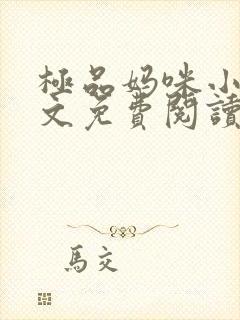 極品妈咪小
文免費閱讀
馬交